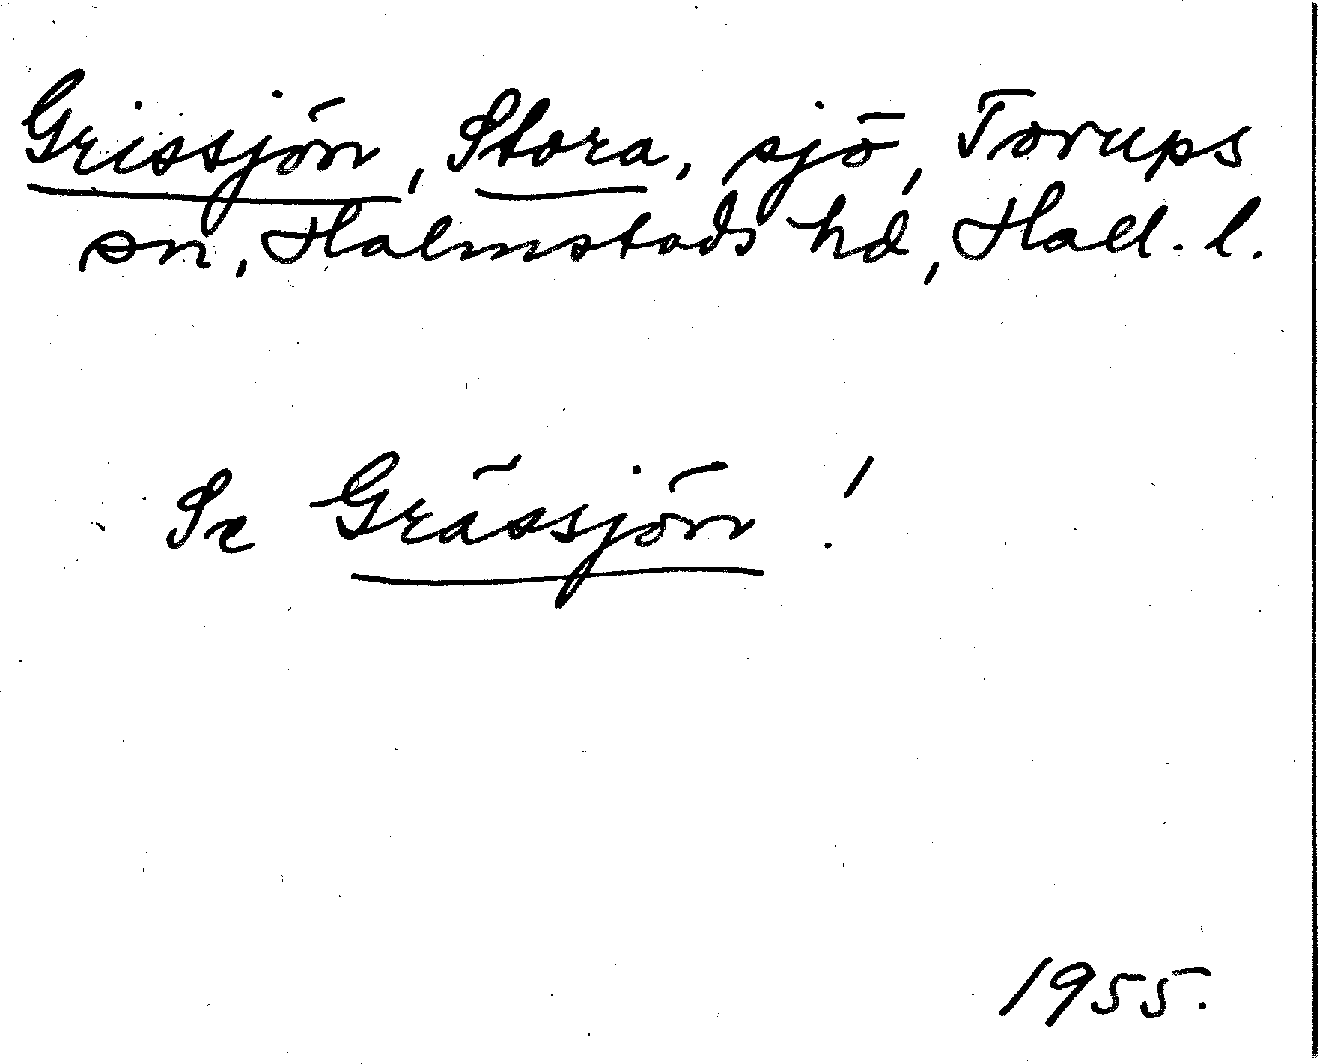 Grissjön, Stora, sjö, Torups
sn, Halmstads hd, Hall. l.
Se Grässjön!
1955.